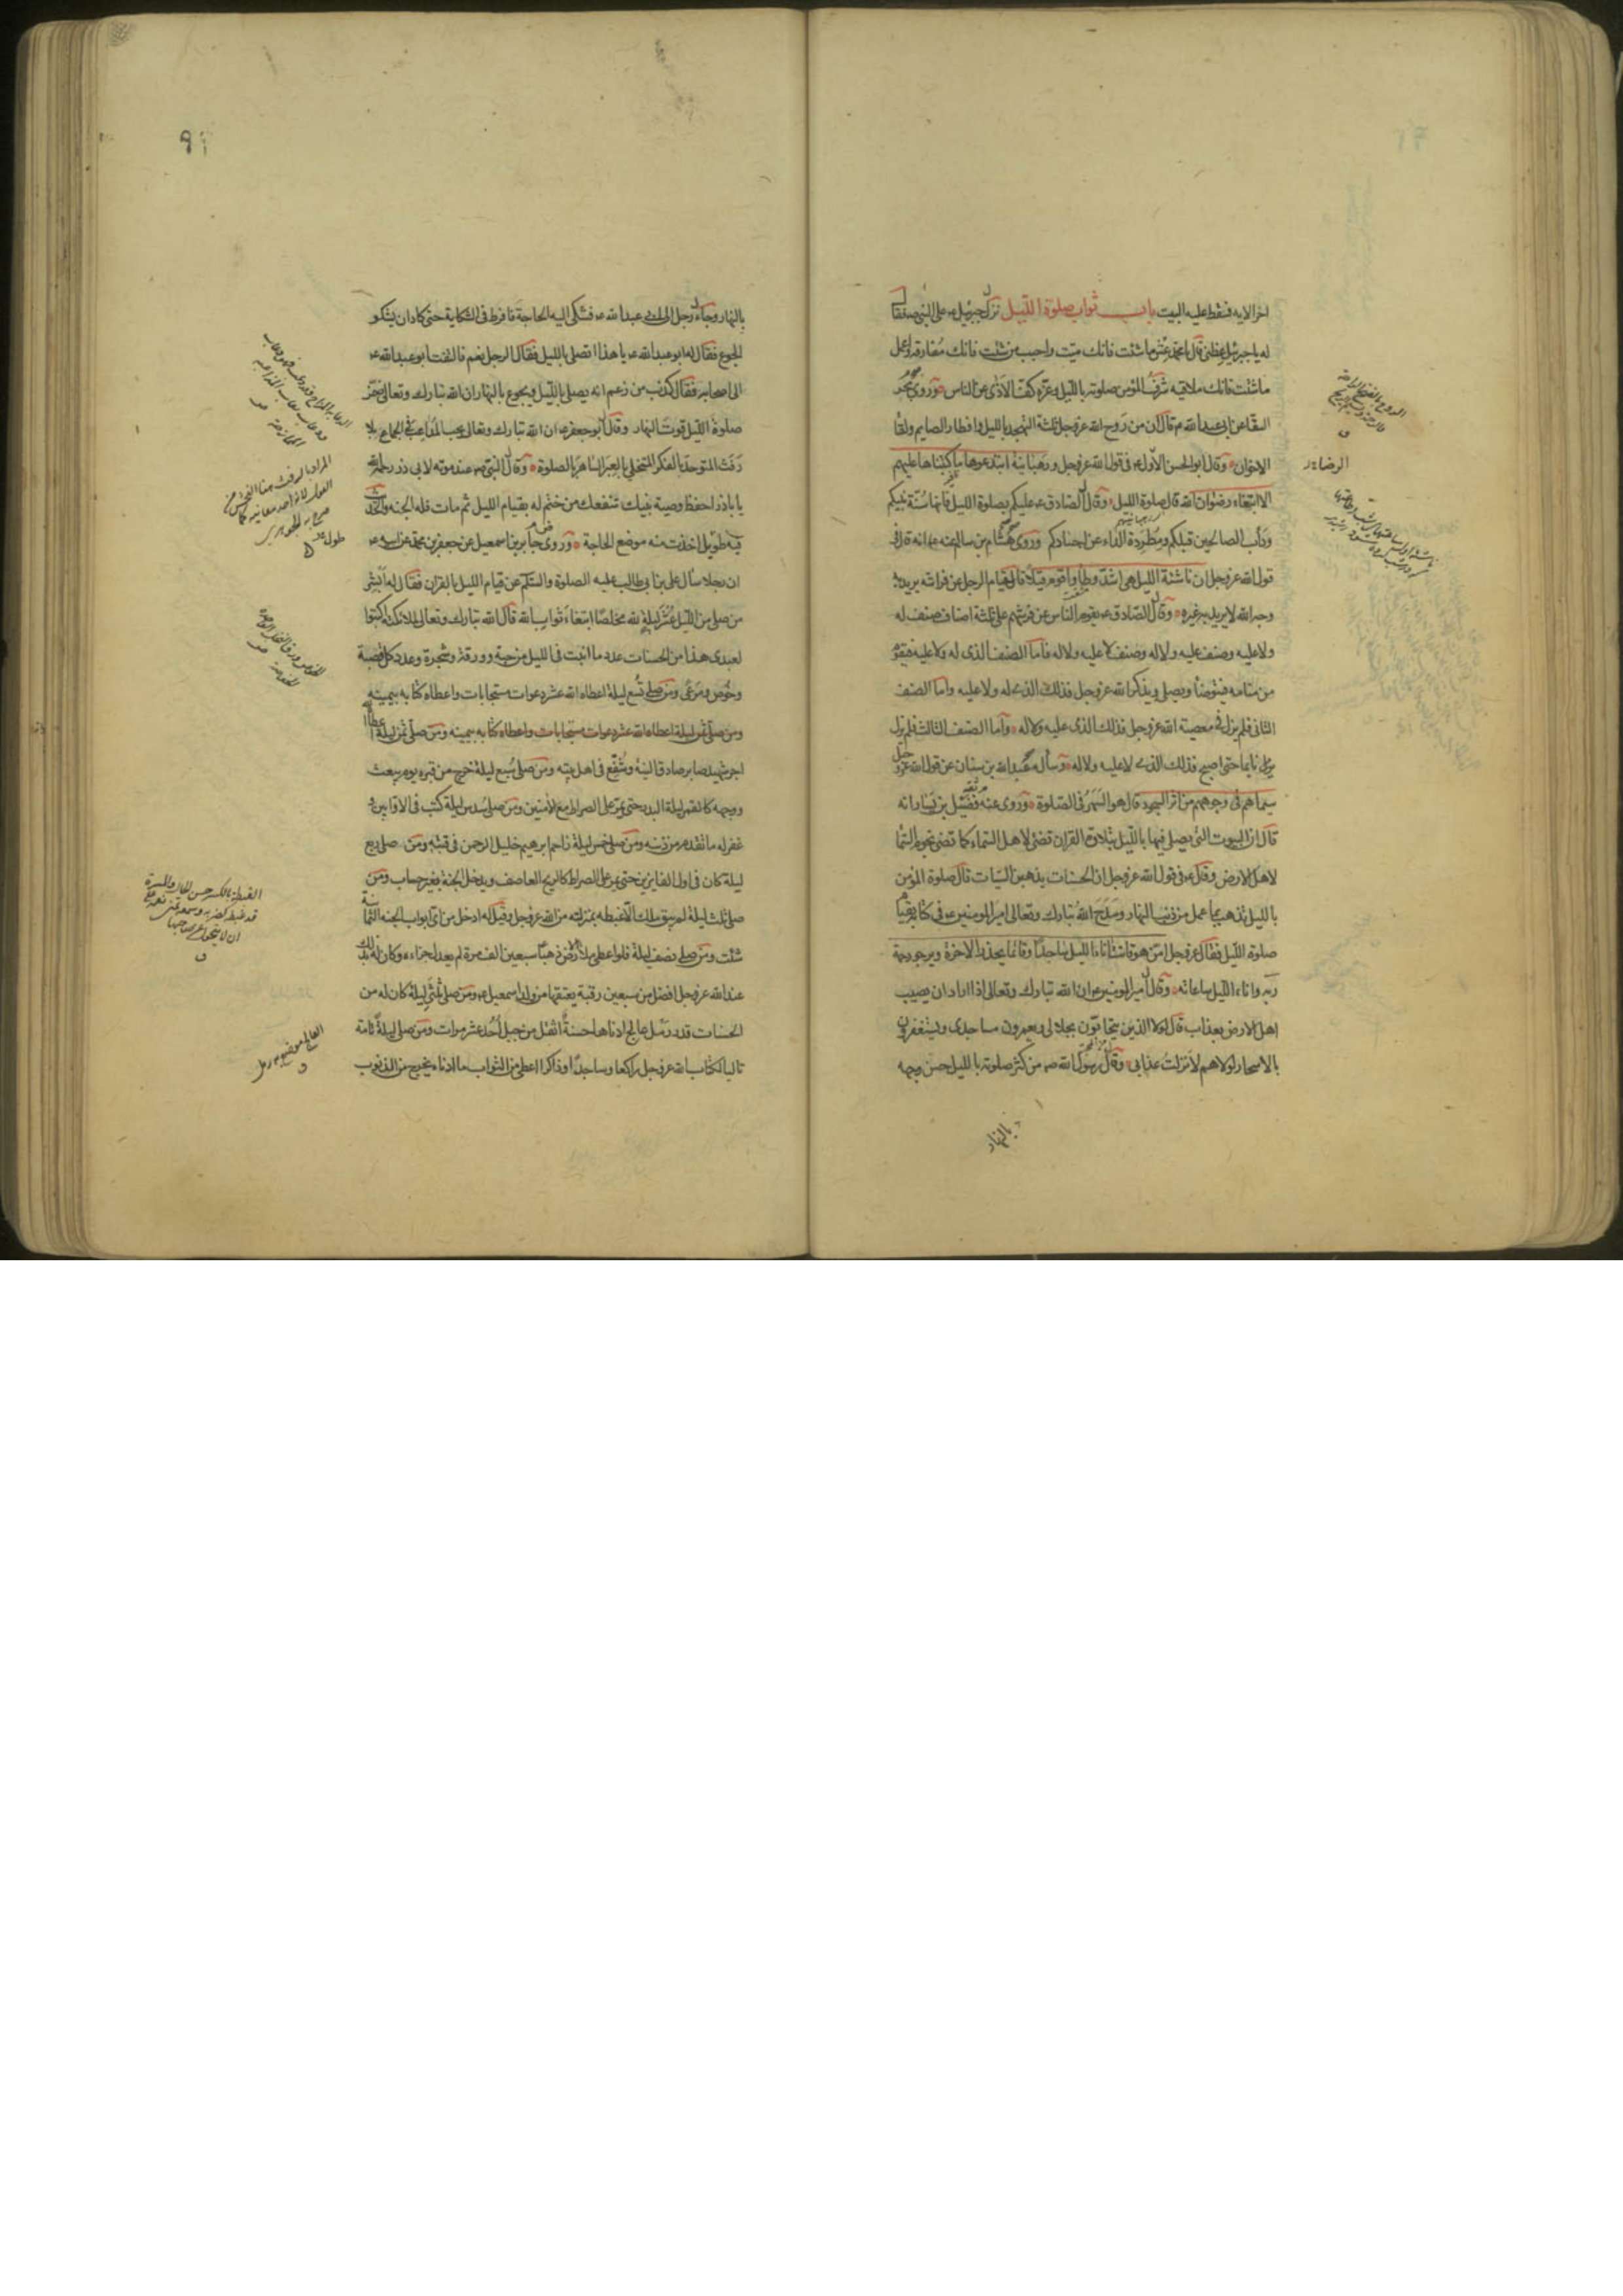 اخر الايه فسقط عليه البيت باب ثواب صلوة الليل نزل جبرئيل ء على النبي ص فقال
له يا جبرئيل عظنى قال يا محمد عش ما شئت فانك ميت واحبب من شئت فانك مفارقه واعمل
ما شئت فانك ملاقيه شرف المؤمن صلوته بالليل وعزه كف الاذى عن الناس وروى بحر
السقا عن ابى عبد الله ء قال ان من روح الله عز وجل ثلثة التهجد بالليل وافطار الصايم ولقا
الاخوان وقال ابو الحسن الاول ء فى قول الله عز وجل ورهبانية ابتدعوها ما كتبناها عليهم
الا ابتغاء رضوان الله قال صلوة الليل وقال الصادق ء عليكم بصلوة الليل فانها سنة نبيكم
ودأب الصالحين قبلكم ومطردة الداء عن اجسادكم وروى هشام بن سالم عنه ء انه قال فى
قول الله عز وجل ان ناشئة الليل هى اشد وطأ واقوم قيلا قال قيام الرجل عن فراشه يريد به
وجه الله لا يريد به غيره وقال الصادق ء يقوم الناس عن فرشهم على ثلثة اصناف صنف له
ولا عليه وصنف عليه ولا له وصنف لا عليه ولا له فاما الصنف الذى له ولا عليه فيقوم
من منامه فيتوضأ ويصلى ويذكر الله عز وجل فذلك الذى له ولا عليه واما الصنف
الثانى فلم يزل فى معصية الله عز وجل فذلك الذى عليه ولا له واما الصنف الثالث فلم يزل
نايما حتى اصبح فذلك الذى لا عليه ولا له وسأله عبد الله بن سنان عن قول الله عز وجل
سيماهم فى وجوههم من اثر السجود قال هو السهر فى الصلوة وروى عنه فضيل بن يسار انه
قال ان البيوت التى يصلى فيها بالليل بتلاوة القران تضئ لاهل السماء كما تضئ نجوم السما
لاهل الارض وقال ء فى قول الله عز وجل ان الحسنات يذهبن السيات قال صلوة المؤمن
بالليل تذهب بما عمل من ذنب النهار ومدح الله تبارك وتعالى امير المومنين ء فى كتابه بقيام
صلوة الليل فقال عز وجل امن هو قانت اناء الليل ساجدا وقائما يحذر الاخرة ويرجو رحمة
ربه واناء الليل ساعاته وقال امير المومنين ء ان الله تبارك وتعالى اذا اراد ان يصيب
اهل الارض بعذاب قال لولا الذين يتحابون بجلالى ويعمرون مساجدى ويستغفرون
بالاسحار لولاهم لانزلت عذابى وقال رسول الله ص من كثر صلوته بالليل حسن وجهه
بالنهار
الرضا ء
بالنهار وجاء رجل الى ابى عبد الله ء فشكى اليه الحاجة فافرط فى الشكاية حتى كاد ان يشكو
الجوع فقال له ابو عبد الله ء يا هذا اتصلى بالليل فقال الرجل نعم فالتفت ابو عبد الله ء
الى اصحابه فقال كذب من زعم انه يصلى بالليل ويجوع بالنهار ان الله تبارك وتعالى ضمن
صلوة الليل قوت النهار وقال ابو جعفر ء ان الله تبارك وتعالى يحب المداعب فى الجماع بلا
رفث المتوحد بالفكر المتخلى بالعبر الساهر بالصلوة وقال النبى ص عند موته لابى ذر رحمة الله
يا باذر احفظ وصية نبيك تنفعك من ختم له بقيام الليل ثم مات فله الجنة والحديث
فيه طويل اخذت منه موضع الحاجة وروى جابر بن اسمعيل عن جعفر بن محمد عن ابيه ء
ان رجلا سأل على بن ابى طالب عليه الصلوة والسلم عن قيام الليل بالقران فقال له ابشر
من صلى من الليل عشر ليلة لله مخلصا ابتغاء ثواب الله قال الله تبارك وتعالى لملائكته اكتبوا
لعبدى هذا من الحسنات عدد ما انبت فى الليل من حبة وورقة وشجرة وعدد كل قصبة
وخوص ومرعى ومن صلى تسع ليلة اعطاه الله عشر دعوات مستجابات واعطاه كتابه بيمينه
ومن صلى ثمن ليلة اعطاه الله عشر دعوات مستجابات واعطاه كتابه بيمينه ومن صلى ثمن ليلة اعطاه الله
اجر شهيد صابر صادق النية وشفع فى اهل بيته ومن صلى سبع ليلة خرج من قبره يوم يبعث
ووجهه كالقمر ليلة البدر حتى يمر على الصراط مع الامنين ومن صلى سدس ليلة كتب فى الاوابين و
غفر له ما تقدم من ذنبه ومن صلى خمس ليلة زاحم ابرهيم خليل الرحمن فى قبته ومن صلى ربع
ليلة كان فى اول الفايزين حتى يمر على الصراط كالريح العاصف ويدخل الجنة بغير حساب ومن
صلى ثلث ليلة لم يبق ملك الا غبطه بمنزلته من الله عز وجل وقيل له ادخل من اى ابواب الجنه الثمانية
شئت ومن صلى نصف ليلة فلو اعطى ملأ الارض ذهبا سبعين الف مرة لم يعدل جزاءه وكان له بذلك
عند الله عز وجل افضل من سبعين رقبة يعتقها من ولد اسمعيل ء ومن صلى ثلثى ليلة كان له من
الحسنات قدر رمل عالج ادناها حسنة اثقل من جبل احد عشر مرات ومن صلى ليلة تامة
تاليا لكتاب الله عز وجل راكعا وساجدا وذاكرا اعطى من الثواب ما ادناه يخرج من الذنوب
الغبطة بالكسر حسن الحال والمسرة